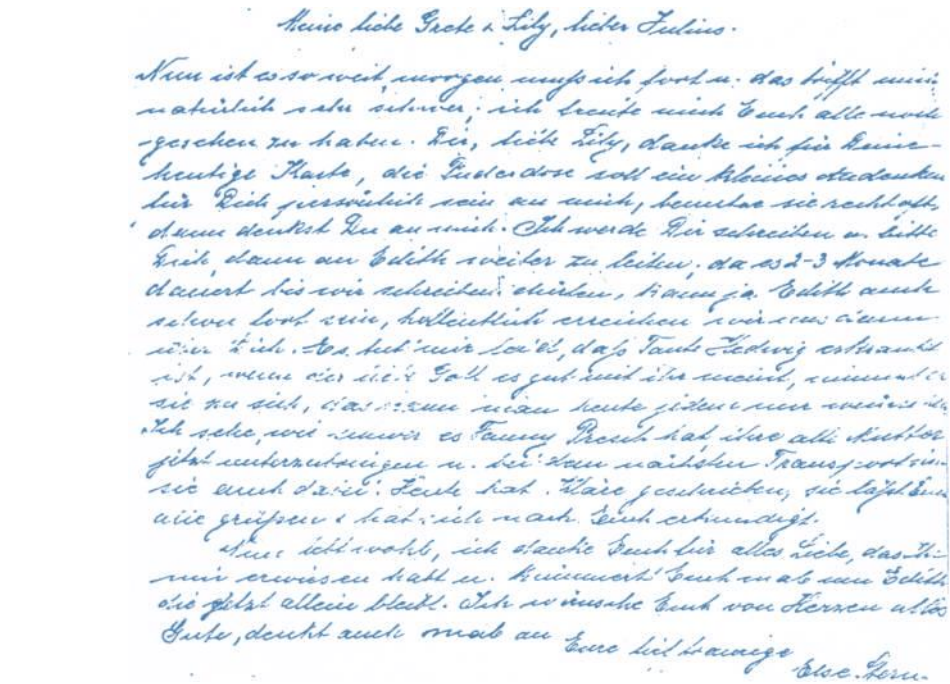 Meine liebe Grete & Lily, lieber Julius.
Nun ist es so weit, morgen muß ich fort u. das trifft mich
natürlich sehr schwer; ich freute mich Euch alle noch
gesehen zu haben. Dir, liebe Lily, danke ich für Deine
heutige Karte, die Puderdose soll ein kleines Andenken
für Dich persönlich sein an mich, benutze sie recht oft,
dann denkst Du an mich. Ich werde Dir schreiben u. bitte
Dich, dann an Edith weiter zu leiten, da es 2-3 Monate
dauert bis wir schreiben dürfen, kann ja Edith auch
schon fort sein, hoffentlich erreichen wir uns dann
über Dich. Es tut mir leid, daß Tante Hedwig erkrankt
ist, wenn der liebe Gott es gut mit ihr meint, nimmt er
sie zu sich, das kann man heute jedem nur
Ich sehe, wie schwer es Fanny hat, ihre alte Mutter
jetzt unterzubringen u. bei dem nächsten Transport
sie auch dabei. Heute hat Kläre geschrieben, sie läßt Euch
alle grüßen & hat sich nach Euch erkundigt.
Nun lebt wohl, ich danke Euch für alles Liebe, das Ihr
mir erwiesen habt u. kümmert Euch mal um Edith
die jetzt allein bleibt. Ich wünsche Euch von Herzen alles
Gute, denkt auch mal an
Eure tieftraurige
Else Stern.